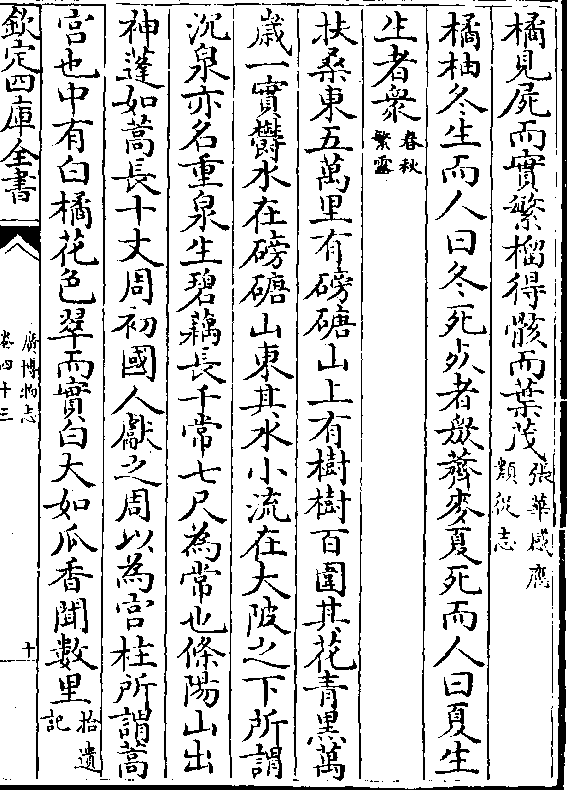 橘見屍而實繁榴得骸而葉茂張華感應類從志
橘柚冬生而人曰冬死死者眾薺麥夏死而人曰夏生
生者衆春秋繁露
扶桑東五萬里有磅磄山上有樹樹百圍其花青黒萬
歳一實欝水在磅磄山東其水小流在大陂之下所謂
沉泉亦名重泉生碧藕長千常七尺為常也條陽山出
神蓬如蒿長十丈周初國人獻之周以為宫柱所謂蒿
宫也中有白橘花色翠而實白大如瓜香聞數里拾遺記
欽定四庫全書
廣博物志
卷四十三
十